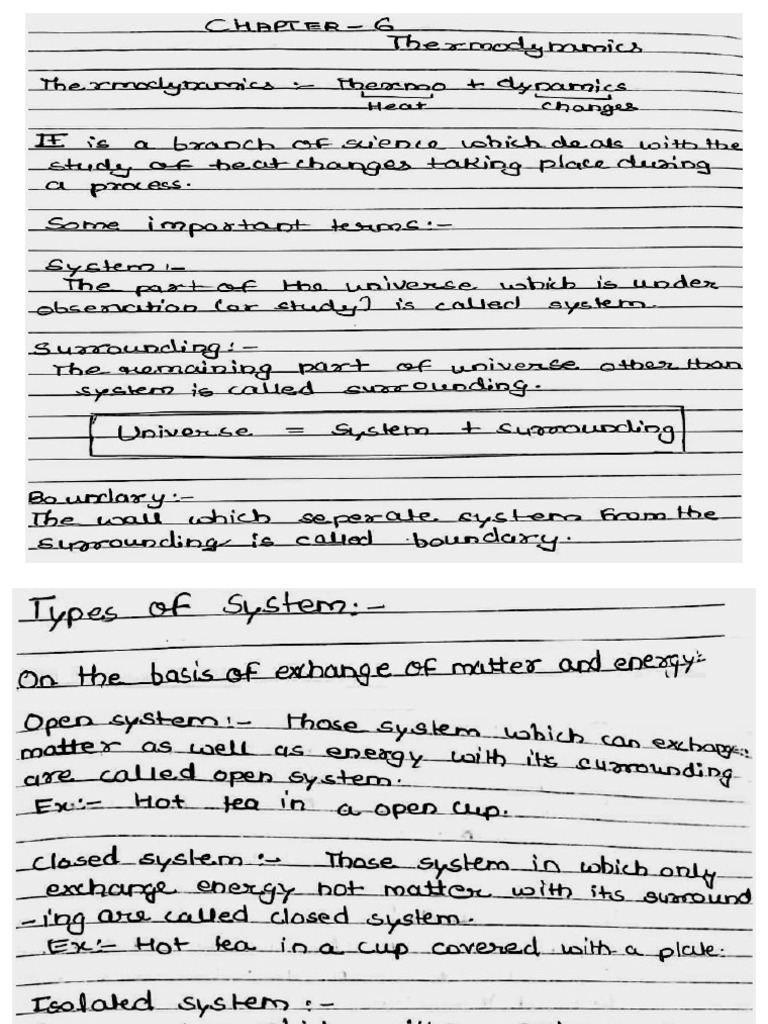 CHAPTER - 6
Thermodynamics
Thermodynamics :- Thermo + dynamics
Heat changes
It is a branch of science which deals with the
study of heat changes taking place during
a process.
Some important terms:-
System:-
The part of the universe which is under
observation (or study) is called system.
Surrounding:-
The remaining part of universe other than
system is called surrounding.
Universe = System + Surrounding
Boundary:-
The wall which seperate system from the
surrounding is called boundary.
Types of System:-
On the basis of exchange of matter and energy:-
Open system:- Those system which can exchange
matter as well as energy with its surrounding
are called open system.
Ex:- Hot tea in a open cup.
Closed system:- Those system in which only
exchange energy not matter with its surround
-ing are called closed system.
Ex:- Hot tea in a cup covered with a plate.
Isolated system:-